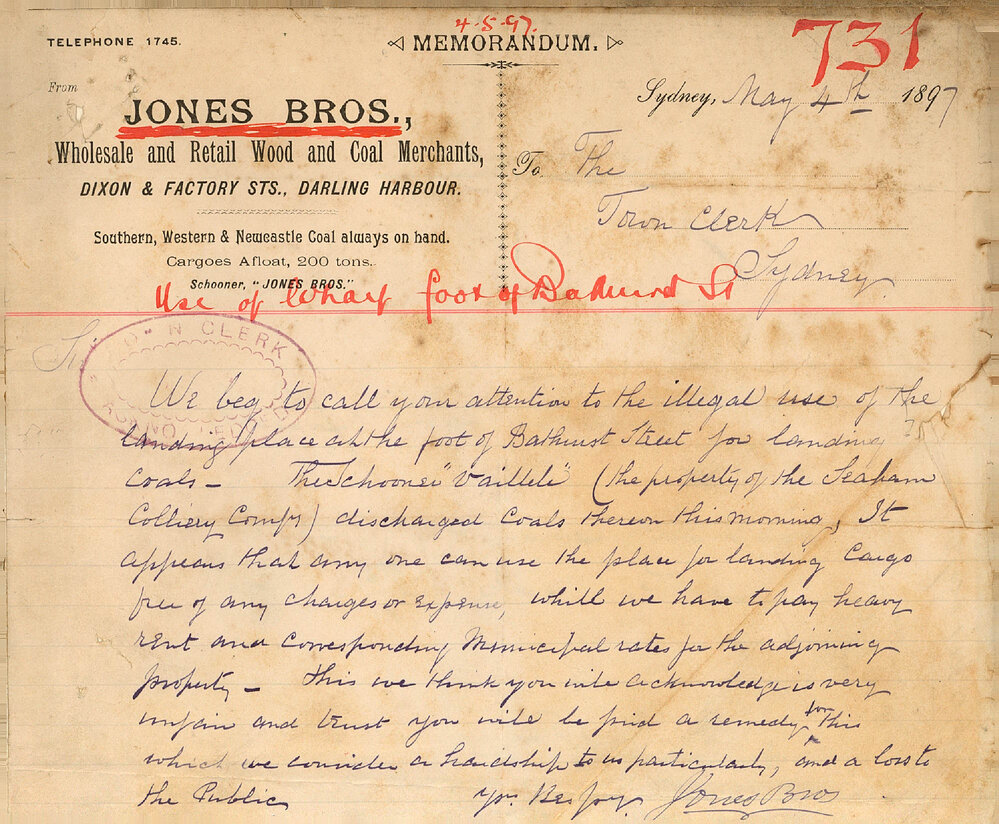 4.5.97.
TELEPHONE 1745.
MEMORANDUM.
731
From
JONES BROS.,
Wholesale and Retail Wood and Coal Merchants,
DIXON & FACTORY STS., DARLING HARBOUR.
Southern, Western & Newcastle Coal always on hand.
Cargoes Afloat, 200 tons.
Schooner, "JONES BROS."
Sydney, May 4th 1897
To The
Town Clerk
Sydney
Use of Wharf foot of Bathurst St
CLERK
We beg to call your attention to the illegal use of the
landing place at the foot of Bathurst Street for landing
Coals – The Schooner "Vaitlele" (the property of the Seaham
Colliery Compy) discharged Coals thereon this morning, It
appears that any one can use the place for landing Cargo
free of any charges or expense, whill we have to pay heavy
rent and corresponding Municipal rates for the adjoining
property – This we think you will acknowledge is very
unfair and trust you will be find a remedy for this
which we consider a hardship to us particularly, and a loss to
the Public
Yrs Respy. Jones Bros